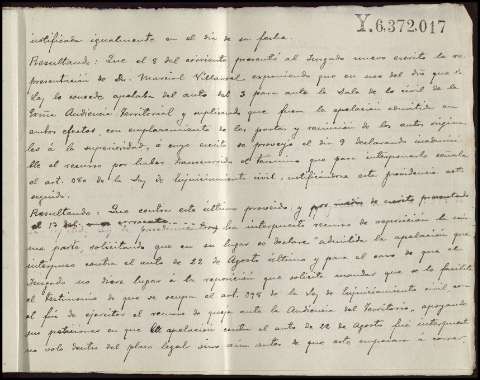 Y.6.372.017
notificada igualmente en el día de su fecha.
Resultando: Que el 8 del corriente presentó al Juzgado nuevo escrito la re
presentación de Dn. Marcial Villarroel exponiendo que en uso del día que la
Ley le concede apelaba del auto del 3 para ante la Sala de lo civil de la
Excma Audiencia Territorial y suplicando que fuera la apelación admitida en
ambos efectos, con emplazamiento de las partes y remisión de los autos origina
les á la superioridad, á cuyo escrito se proveyó el día 9 declarando inadmisi
ble el recurso por haber transcurrido el término que para interponerlo señala
el art. de la Ley de Enjuiciamiento civil, notificándose esta providencia acto
seguido.
Resultando: Que contra este último proveído, y por medio de escrito presentado
el 13 del ha interpuesto recurso de reposición la mis
ma parte, solicitando que en su lugar se declare "admitida la apelación que
interpuso contra el auto de 22 de Agosto último y para el caso de que el
Juzgado no diere lugar á la reposición que solicita mandar que se le facilite
el testimonio de que se ocupa el art. 398 de la Ley de Enjuiciamiento civil con
el fin de ejercitar el recurso de queja ante la Audiencia del Territorio", apoyando
sus peticiones en que la apelación contra el auto de 22 de Agosto fué interpuesta
no solo dentro del plazo legal sino aún antes de que este empezara á correr.